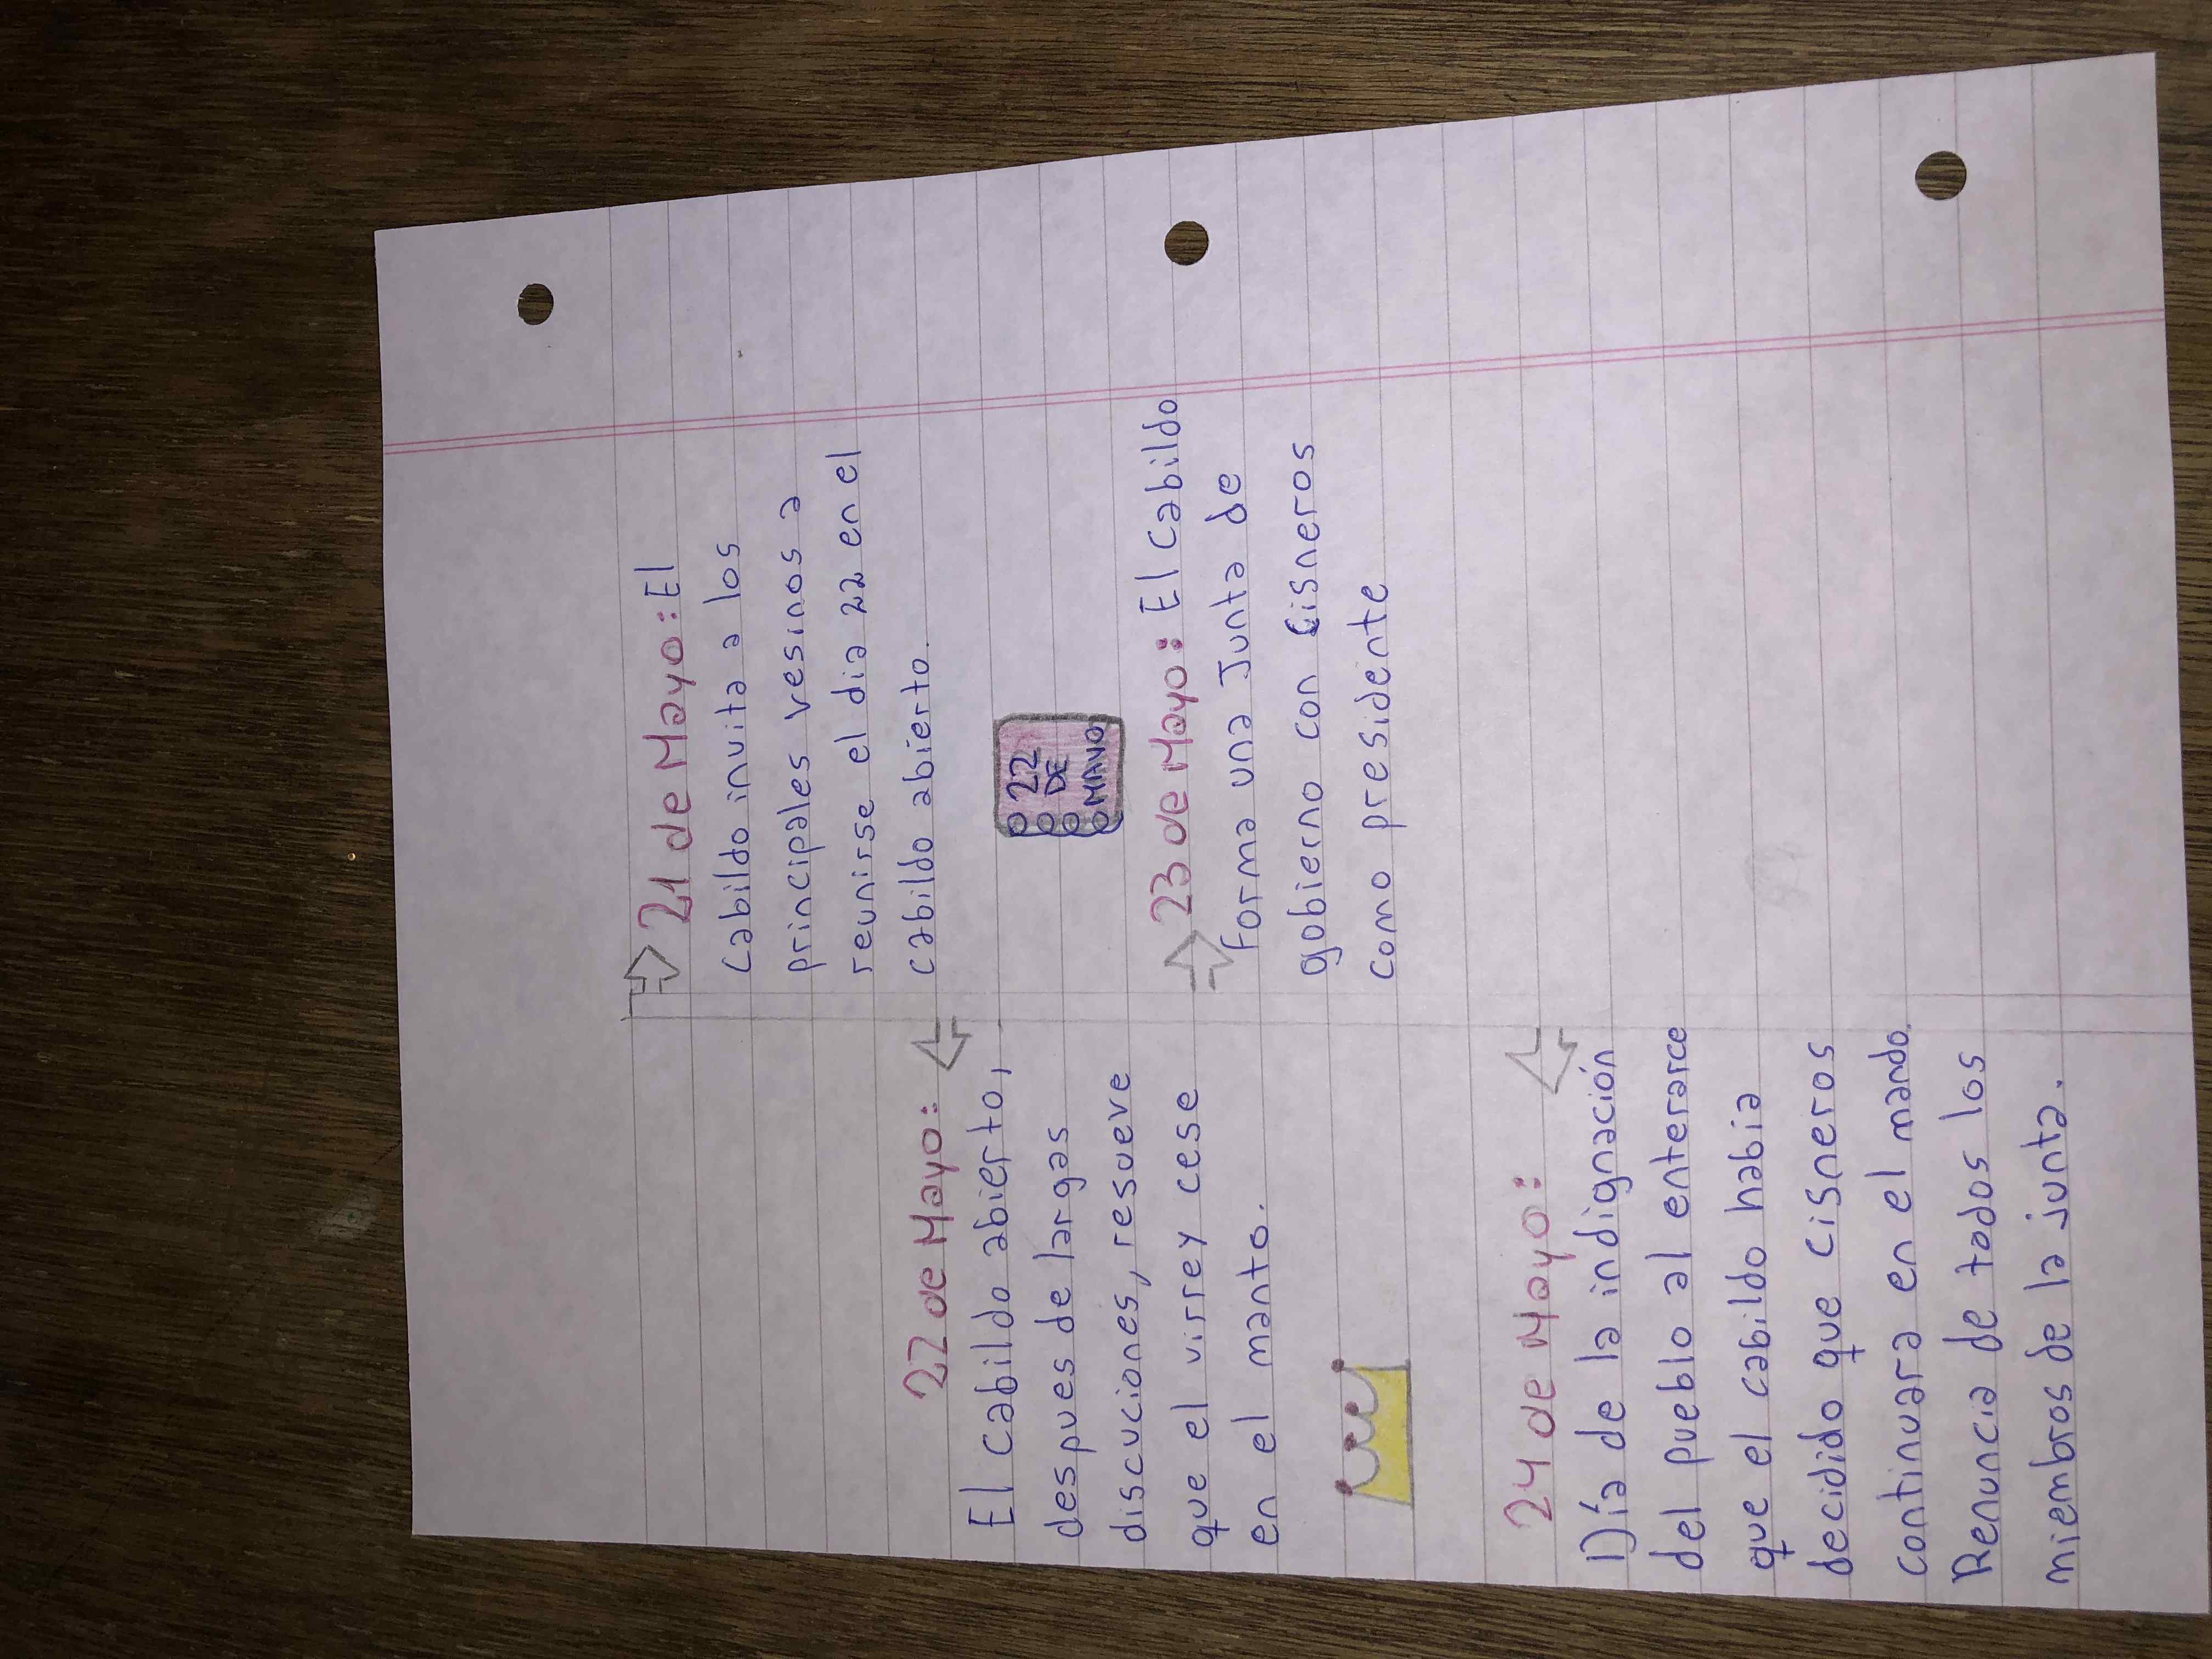 21 de Mayo: El
cabildo invita a los
principales vesinos a
reunirse el dia 22 en el
cabildo abierto.
22 de Mayo:
El cabildo abierto,
despues de largas
discuciones, resueve
que el virrey cese
en el manto.
22
DE
MAYO
23 de Mayo: El cabildo
Forma una Junta de
gobierno con Cisneros
como presidente
24 de Mayo:
Día de la indignación
del pueblo al enterarce
que el cabildo habia
decidido que cisneros
continuara en el mando.
Renuncia de todos los
miembros de la junta.